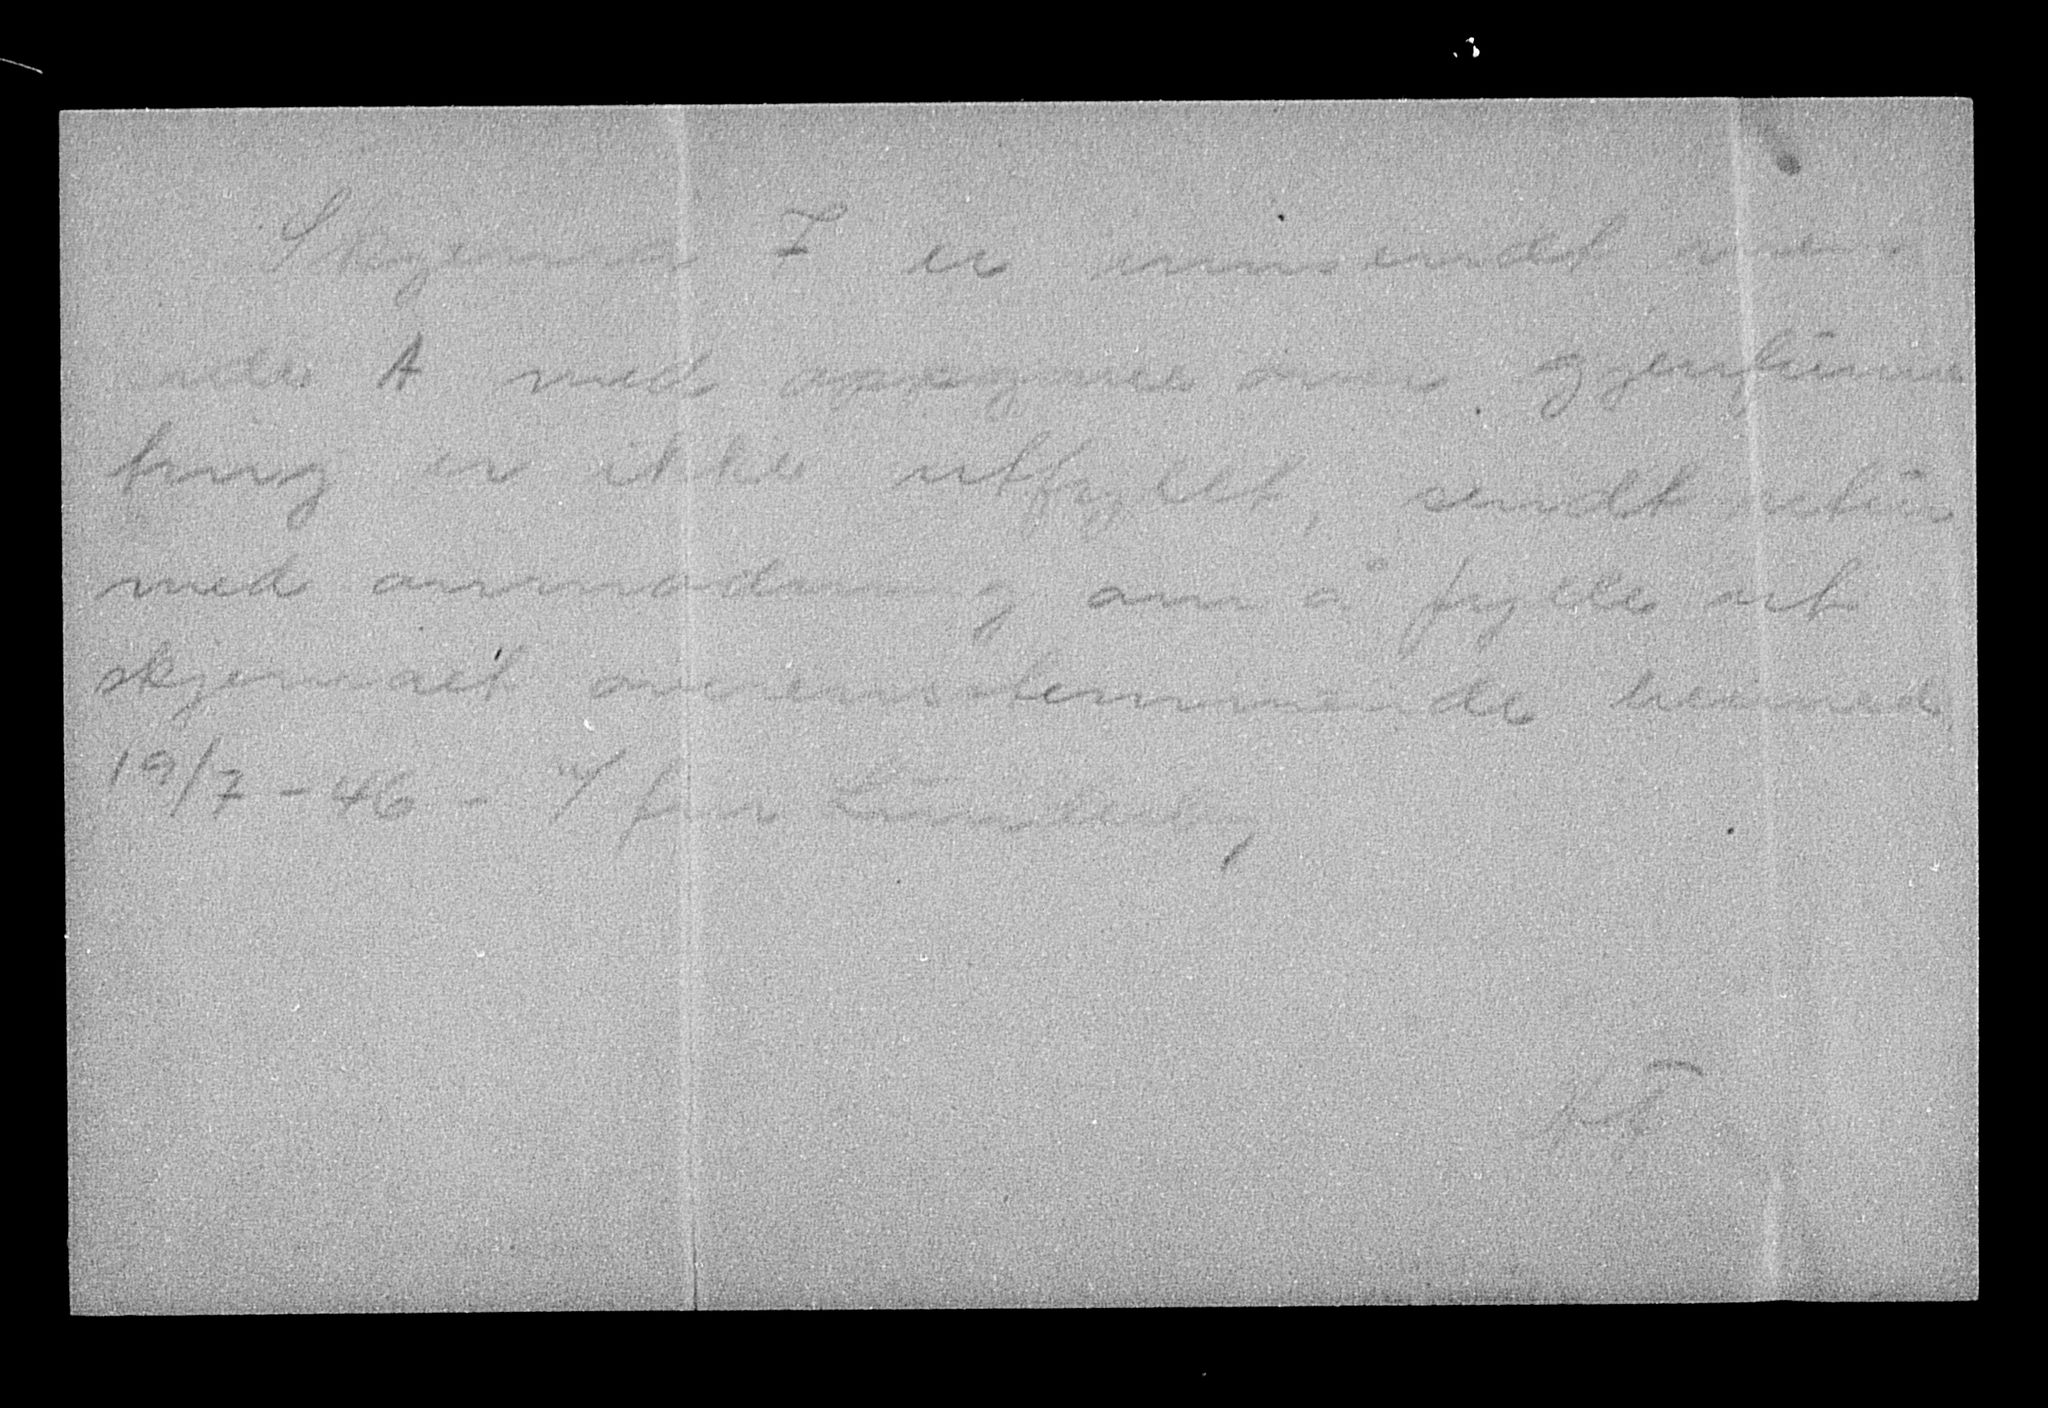 Skjema F er innsendt men
side A med oppgave over gjenfunne
ting er ikke utfyllt, sendt retur
med anmodning om å fylle ut
skjemaet overensstemmende hermed
19/7 - 46 -